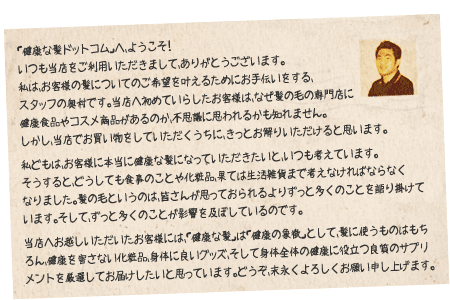 「健康な髪ドットコム」へ、ようこそ！
いつも当店をご利用いただきまして、ありがとうございます。
私は、お客様の髪についてのご希望を叶えるためにお手伝いをする、
スタッフの奥村です。当店へ初めていらしたお客様は、なぜ髪の毛の専門店に
健康食品やコスメ商品があるのか、不思議に思われるかも知れません。
しかし、当店でお買い物をしていただくうちに、きっとお解りいただけると思います。
私どもは、お客様に本当に健康な髪になっていただきたいと、いつも考えています。
そうすると、どうしても食事のことや化粧品、果ては生活雑貨まで考えなければならなく
なりました。髪の毛というのは、皆さんが思っておられるよりずっと多くのことを語り掛けて
います。そして、ずっと多くのことが影響を及ぼしているのです。
当店へお越しいただいたお客様には、「健康な髪」は「健康の象徴」として、髪に使うものはもち
ろん、健康を害さない化粧品、身体に良いグッズ、そして身体全体の健康に役立つ良質のサプリ
メントを厳選してお届けしたいと思っています。どうぞ、末永くよろしくお願い申し上げます。